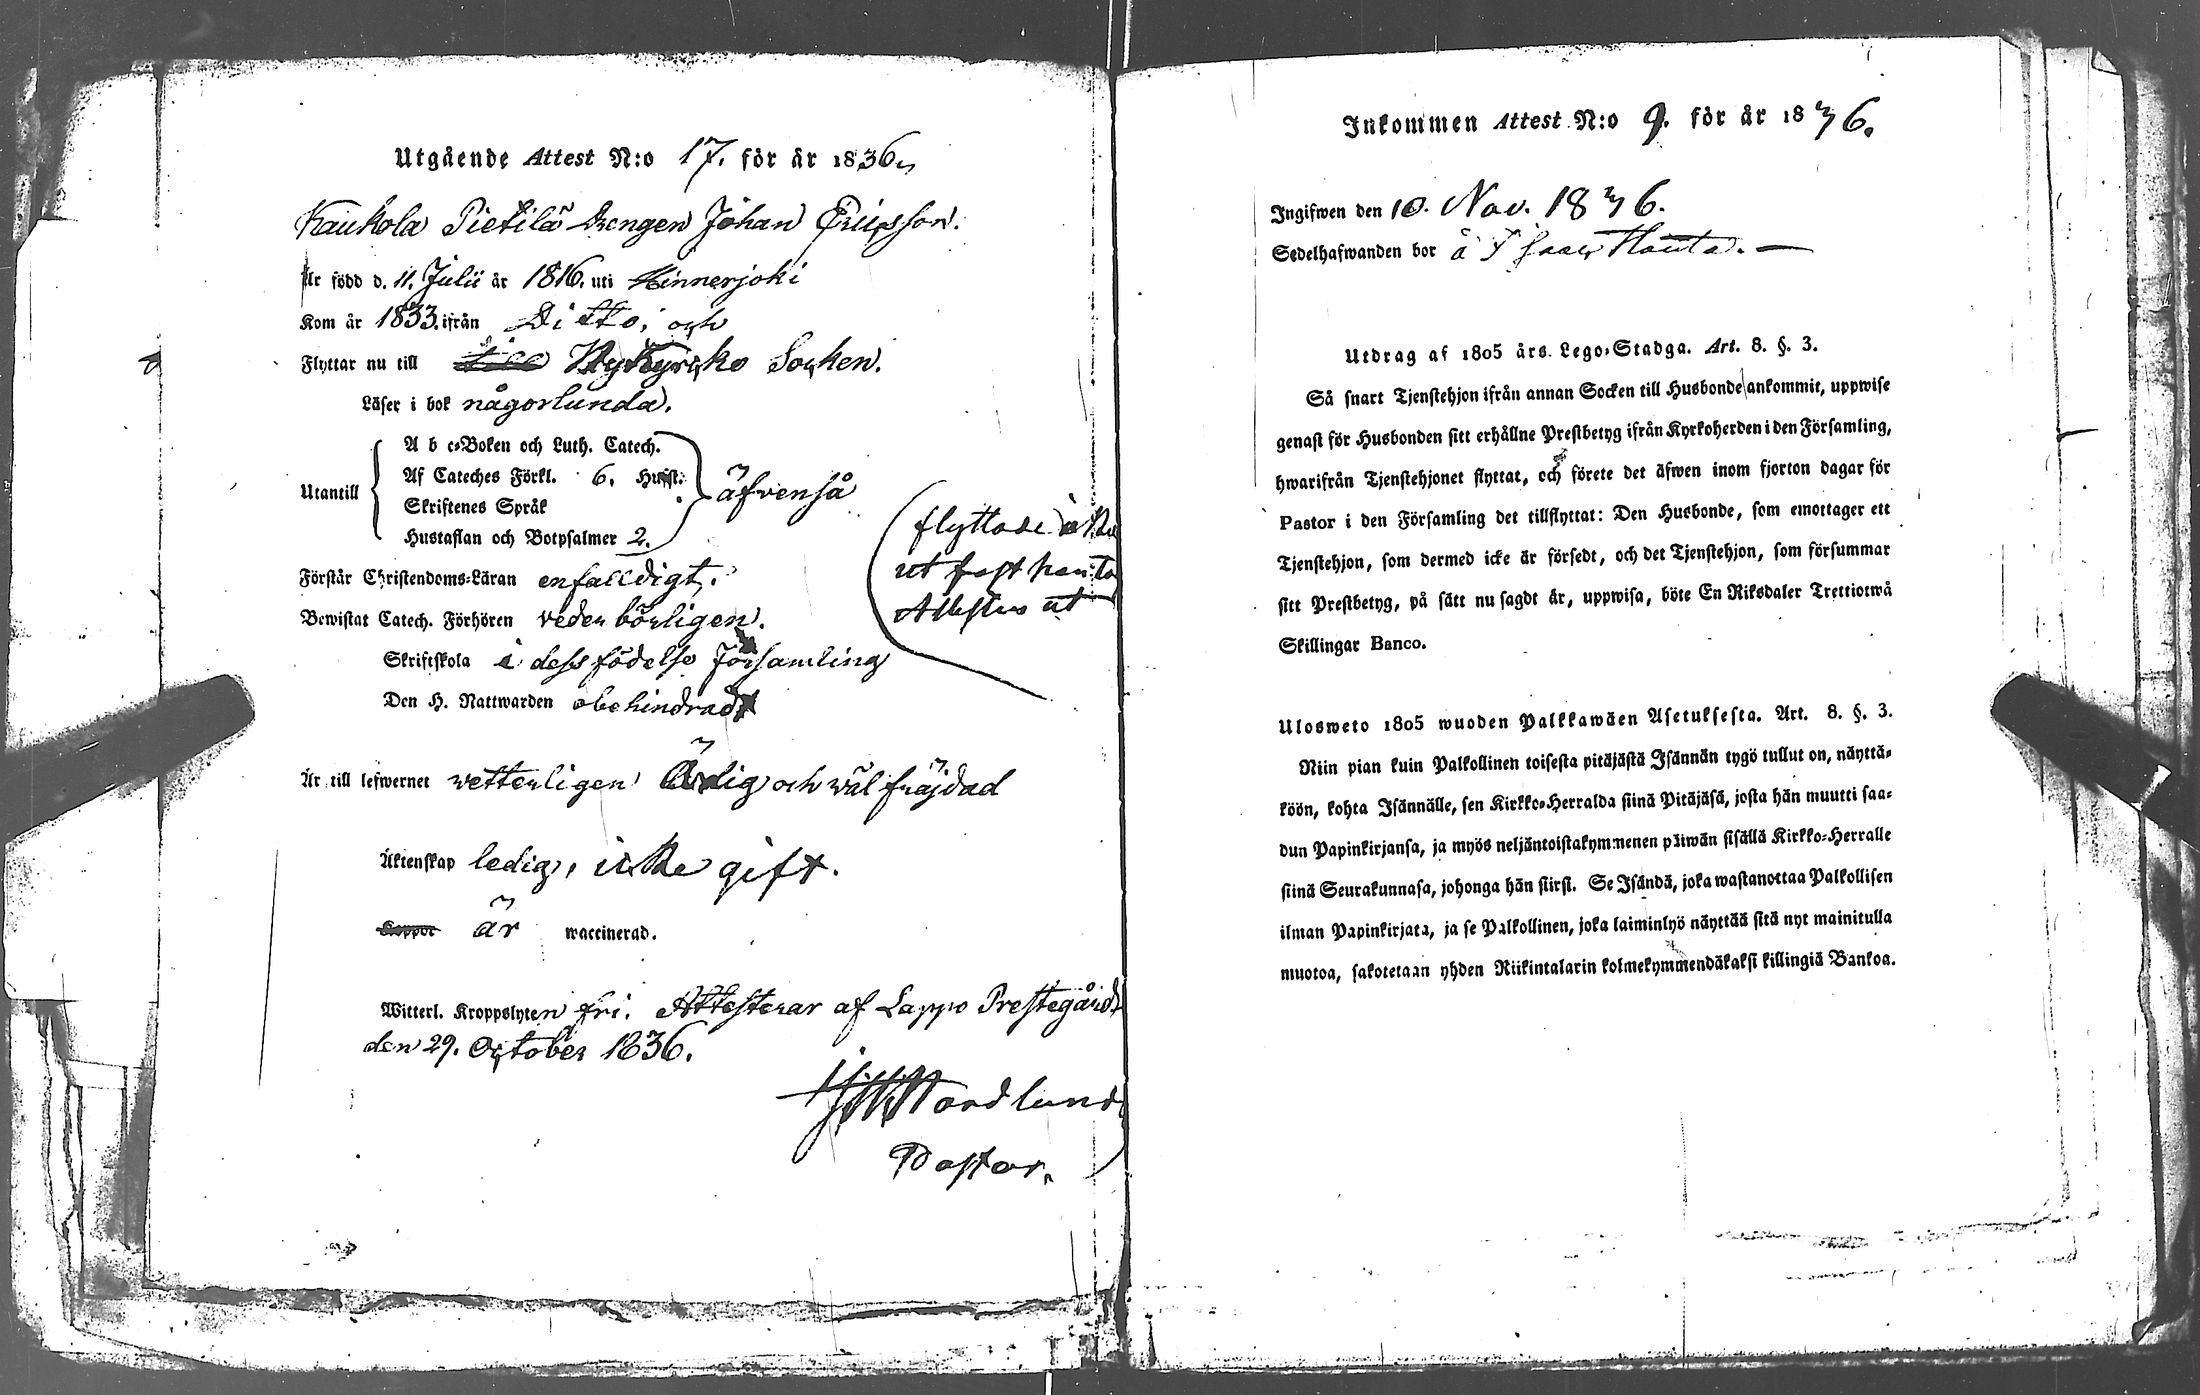 Utgående Attest N:o 17. för år 1836
Kaukola Pietilä Drengen Johan Ericsson.
Är född d. 11. Julii år 1816. uti Hinnerjoki
Kom år 1833. ifrån Ditto, och
Flyttar nu till till Nykyrko Socken.
Läser i bok någorlunda.
Utantill
A b c-Boken och Luth. Catech.
Af Cateches Förkl. 6. Hufst.
Skriftenes Språk
Hustaflan och Botpsalmer 2.
äfvenså
Förstår Christendoms-Läran enfalldigt.
Bewistat Catech. Förhören vederbörligen.
Skriftskola i dess födelse Församling
Den H. Nattwarden obehindrad
(flyttade icke
ut fast han tog
Attesten ut
Är till lefwernet vetterligen ärlig och väl fräjdad
Äktenskap ledig, icke gift.
Koppor är waccinerad.
Witterl. Kroppslyten fri. Attesterar af Lappo Prestegård
den 29. October 1836.
Nordlund
Pastor.
Inkommen Attest N:o 9. för år 1836.
Ingifwen den 10. Nov. 1836.
Sedelhafwanden bor å
Utdrag af 1805 års Lego-Stadga. Art. 8. §. 3.
Så snart Tjenstehjon ifrån annan Socken till Husbonde ankommit, uppwise
genast för Husbonden sitt erhållne Prestbetyg ifrån Kyrkoherden i den Församling,
hwarifrån Tjenstehjonet flyttat, och förete det äfwen inom fjorton dagar för
Pastor i den Församling det tillflyttat: Den Husbonde, som emottager ett
Tjenstehjon, som dermed icke är försedt, och det Tjenstehjon, som försummar
sitt Prestbetyg, på sätt nu sagdt är, uppwisa, böte En Riksdaler Trettiotwå
Skillingar Banco.
Ulosweto 1805 wuoden Palkkawäen Asetuksesta. Art. 8. §. 3.
Niin pian kuin Palkollinen toisesta pitäjästä Isännän tygö tullut on, näyttä-
köön, kohta Isännälle, sen Kirkko-Herralda siinä Pitäjäsä, josta hän muutti saa-
dun Papinkirjansa, ja myös neljäntoistakymmenen päiwän sisällä Kirkko-Herralle
siinä Seurakunnasa, johonga hän siirst. Se Isändä, joka wastanottaa Palkollisen
ilman Papinkirjata, ja se Palkollinen, joka laiminlyö näyttää sitä nyt mainitulla
muotoa, sakotetaan yhden Riikintalarin kolmekymmendäkaksi killingiä Bankoa.